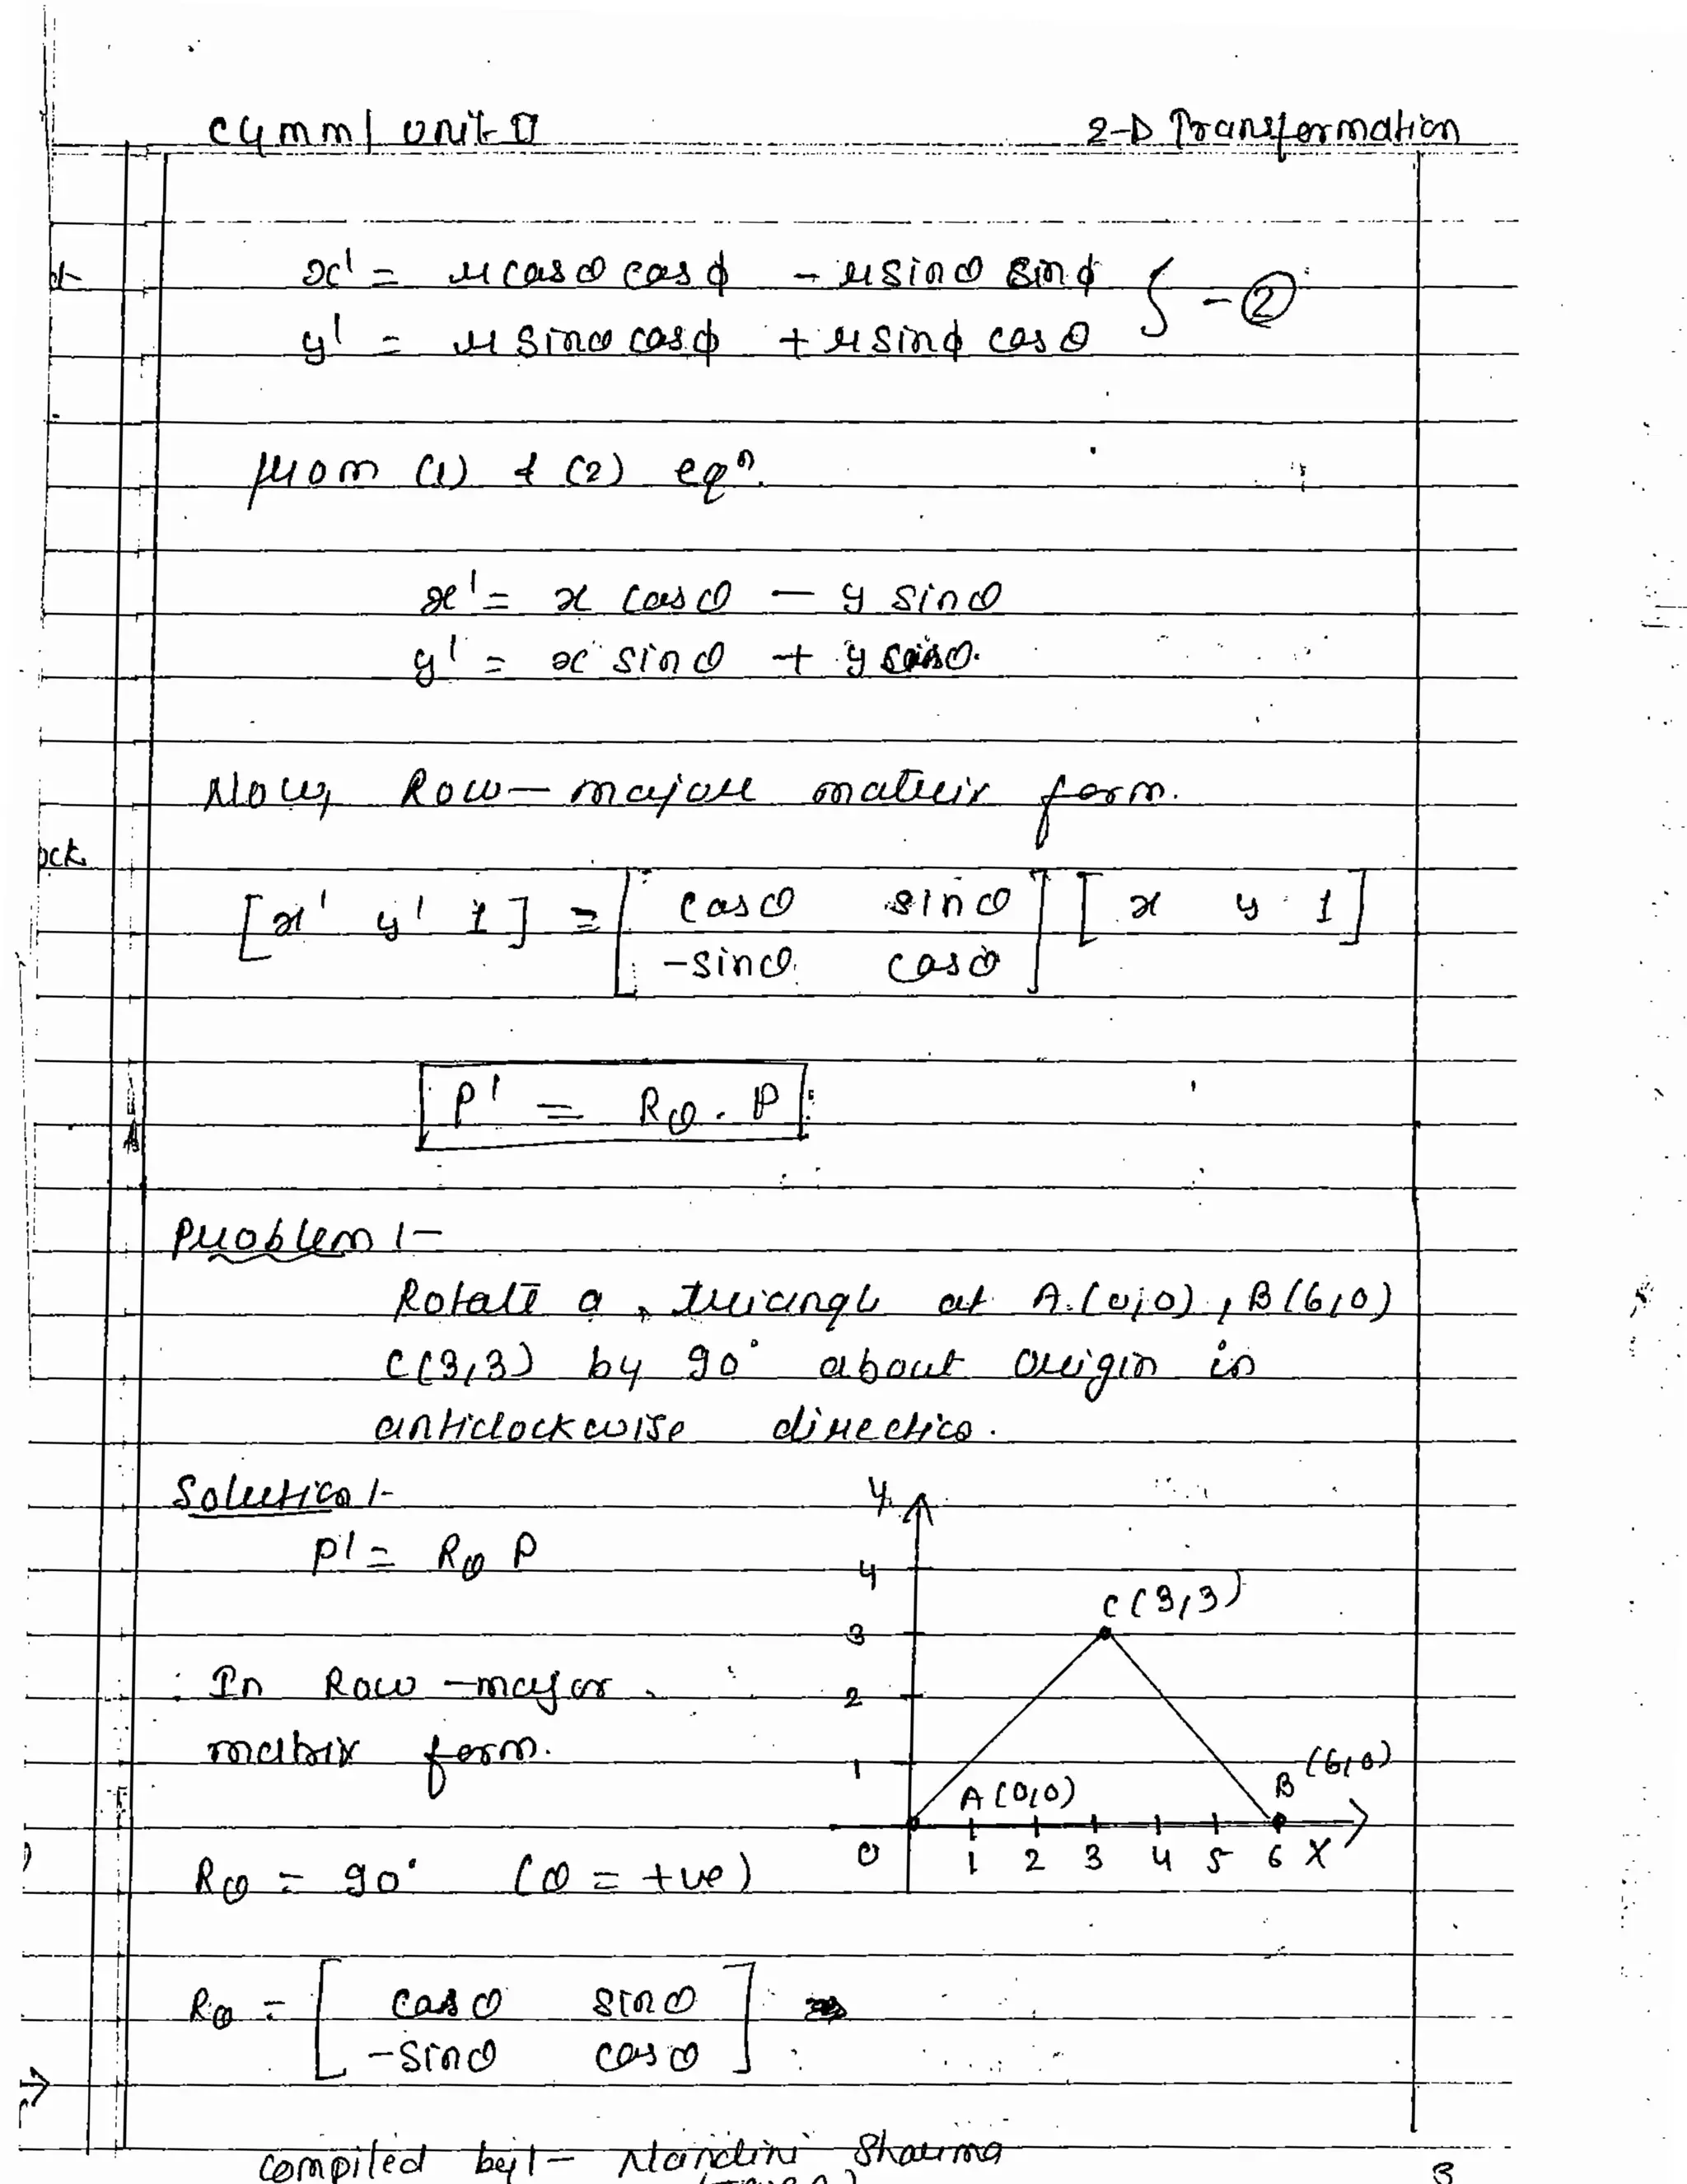 CGMM/ Unit-II
2-D Transformation
x' = r cosθ cosϕ - r sinθ sinϕ
y' = r sinθ cosϕ + r sinϕ cosθ } - ②
from (1) & (2) eqⁿ.
x' = x cosθ - y sinθ
y' = x sinθ + y cosθ.
Now, Row-major matrix form.
[x' y' 1] = [ cosθ sinθ ] [ x y 1 ]
-sinθ cosθ
P' = Rθ . P
Problem :-
Rotate a triangle at A(0,0), B(6,0)
C(3,3) by 90° about origin in
anticlockwise direction.
Solution :-
P' = Rθ P
In Row-major
matrix form.
Rθ = 90° (θ = +ve)
Y
4
3
2
1
0
C(3,3)
A(0,0)
B (6,0)
1 2 3 4 5 6 X
Rθ = [ cosθ sinθ ]
-sinθ cosθ
Compiled by :- Nandini Sharma
3